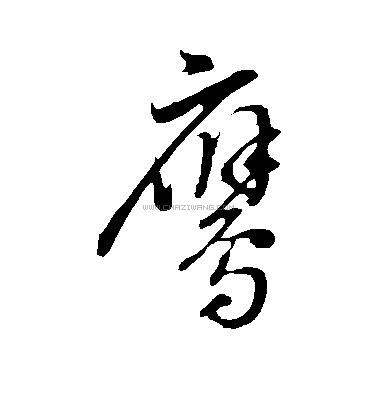 鷹
WWW.CHAZIWANG.COM